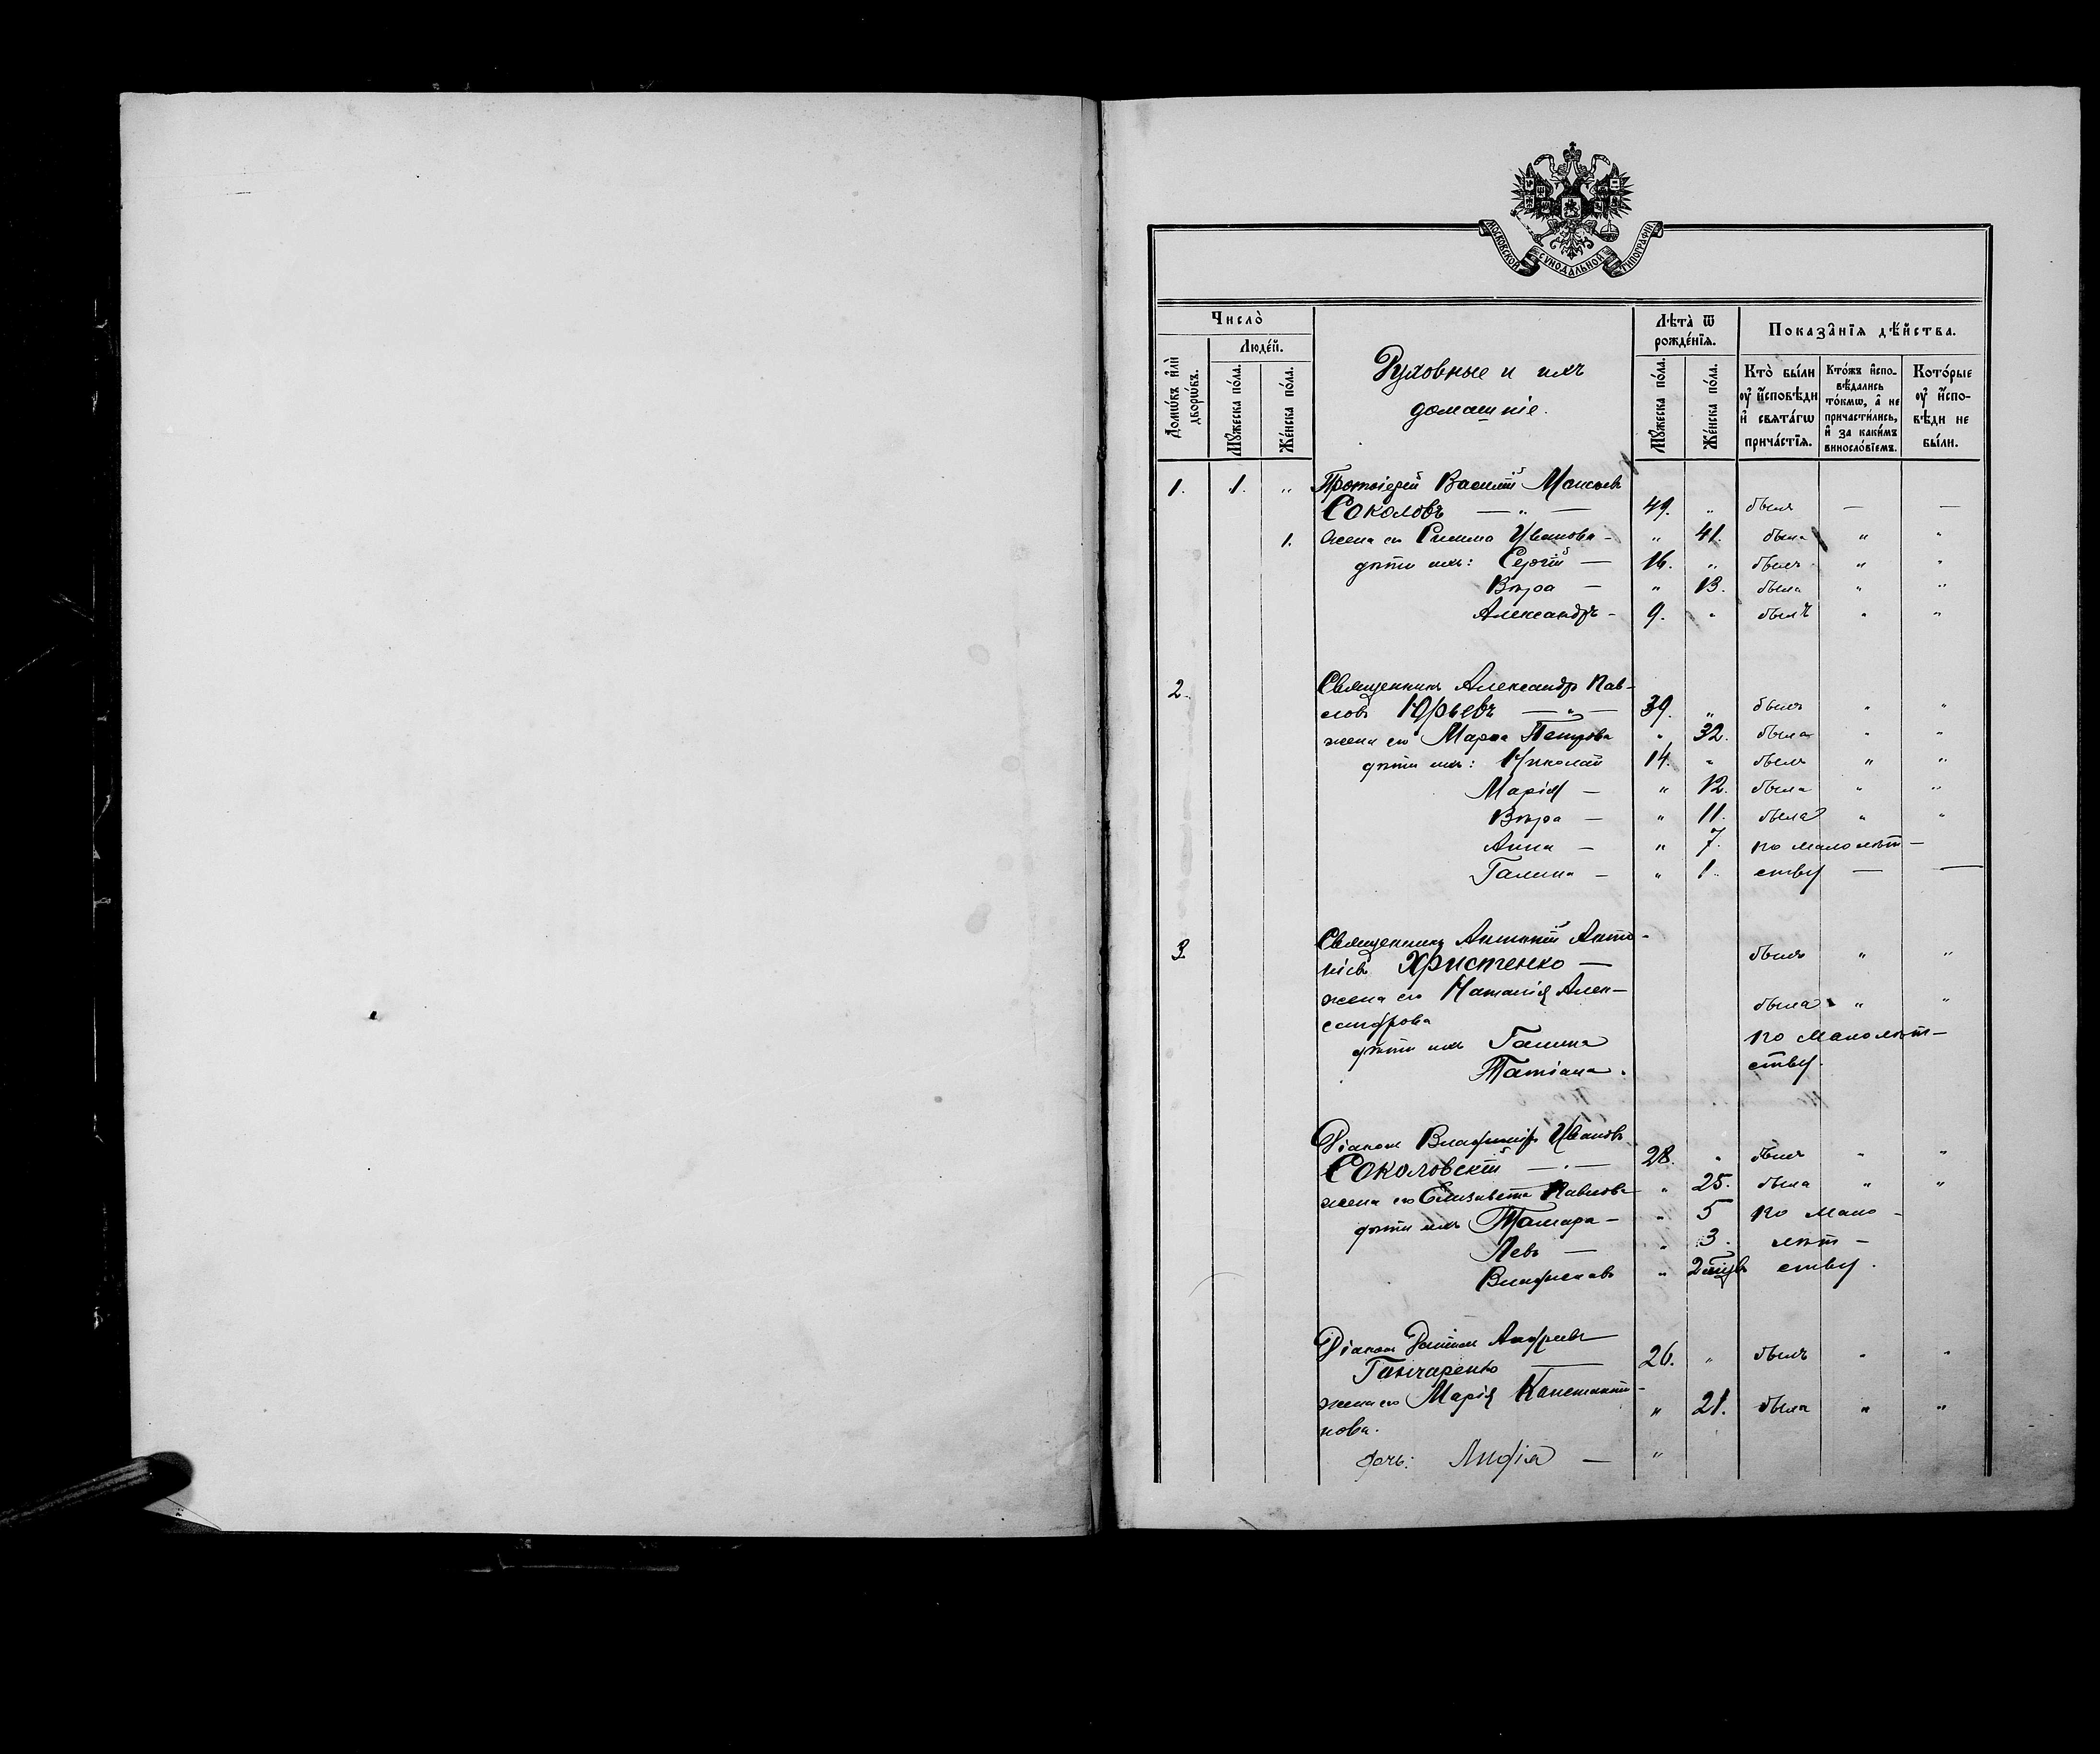 МОСКОВСКОЙ СУНОДАЛЬНОЙ ТИПОГРАФІИ
Число̀
Домѡ́въ и҆лѝ дворѡ́въ.
Люде́й.
Мꙋ́жеска по́ла.
Же́нска по́ла.
Духовные и ихъ
домашніе.
Лѣта̀ ѿ рожде́нїѧ.
Мꙋ́жеска по́ла.
Же́нска по́ла.
Показа̑нїѧ дѣ́йства.
Кто̀ бы́ли ᲂу҆ и҆сповѣ́ди и҆ свѧта́гѡ прича́стїѧ.
Кто́жъ и҆спо-вѣ́дались то́кмѡ, а҆ не причасти́лись, и҆ за каки́мъ виносло́вїемъ.
Кото́рые ᲂу҆ и҆спо-вѣ́ди не бы́ли.
1. 1. „ Протоіерей Василій Моисеев
Соколовъ — „ — 49. „ былъ — —
1. жена его Ивanова — „ 41. была „ „
дѣти ихъ: Сергій — 16. „ былъ „ „
Вѣра — „ 13. была „ „
Александръ — 9. „ былъ „ „
2. Священникъ Александр Пав-
ловъ Юрьевъ — „ — 39. „ былъ „ „
жена его Марія Петрова „ 32. была „ „
дѣти ихъ: Николай 14. „ былъ „ „
Марія — „ 12. была „ „
Вѣра — „ 11. была „ „
Анна — „ 7. по малолѣт—
Галина — „ 1. ству — —
3. Священникъ Антоній Анто-
ніевъ Христенко — былъ „ „
жена его Наталія Алек-
сандрова была „ „
дѣти ихъ Галина по малолѣт—
Татіана. ству.
Діаконъ Владиміръ Ивановъ
Соколовскій — „ — 28. „ былъ „ „
жена его Елизавета Павлова „ 25. была „ „
дѣти ихъ Тамара — „ 5 по мало-
Левъ — „ 3. лѣт-
Владиславъ „ 2 ству.
Діаконъ Андреевъ
Гончаренко — 26. „ былъ „ „
жена его Марія Константи-
нова. „ 21. была „ „
дочь: Лидія — „